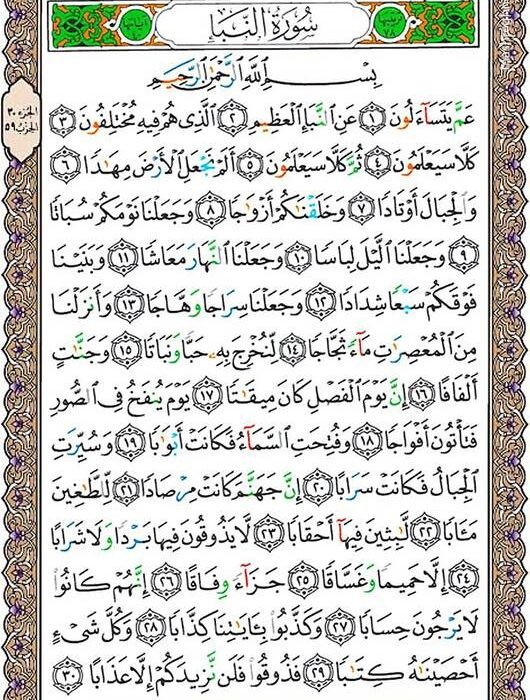 سُورَةُ النَّبَإِ
بِسْمِ اللَّهِ الرَّحْمَٰنِ الرَّحِيمِ
الجزء ٣٠
الحزب ٥٩
عَمَّ يَتَسَآءَلُونَ ١ عَنِ النَّبَإِ الْعَظِيمِ ٢ الَّذِى هُمْ فِيهِ مُخْتَلِفُونَ ٣
كَلَّا سَيَعْلَمُونَ ٤ ثُمَّ كَلَّا سَيَعْلَمُونَ ٥ أَلَمْ نَجْعَلِ الْأَرْضَ مِهَٰدًا ٦
وَالْجِبَالَ أَوْتَادًا ٧ وَخَلَقْنَٰكُمْ أَزْوَٰجًا ٨ وَجَعَلْنَا نَوْمَكُمْ سُبَاتًا
٩ وَجَعَلْنَا الَّيْلَ لِبَاسًا ١٠ وَجَعَلْنَا النَّهَارَ مَعَاشًا ١١ وَبَنَيْنَا
فَوْقَكُمْ سَبْعًا شِدَادًا ١٢ وَجَعَلْنَا سِرَاجًا وَهَّاجًا ١٣ وَأَنزَلْنَا
مِنَ الْمُعْصِرَٰتِ مَآءً ثَجَّاجًا ١٤ لِّنُخْرِجَ بِهِۦ حَبًّا وَنَبَاتًا ١٥ وَجَنَّٰتٍ
أَلْفَافًا ١٦ إِنَّ يَوْمَ الْفَصْلِ كَانَ مِيقَٰتًا ١٧ يَوْمَ يُنفَخُ فِى الصُّورِ
فَتَأْتُونَ أَفْوَاجًا ١٨ وَفُتِحَتِ السَّمَآءُ فَكَانَتْ أَبْوَٰبًا ١٩ وَسُيِّرَتِ
الْجِبَالُ فَكَانَتْ سَرَابًا ٢٠ إِنَّ جَهَنَّمَ كَانَتْ مِرْصَادًا ٢١ لِّلطَّٰغِينَ
مَـَٔابًا ٢٢ لَّٰبِثِينَ فِيهَآ أَحْقَابًا ٢٣ لَّا يَذُوقُونَ فِيهَا بَرْدًا وَلَا شَرَابًا
٢٤ إِلَّا حَمِيمًا وَغَسَّاقًا ٢٥ جَزَآءً وِفَاقًا ٢٦ إِنَّهُمْ كَانُوا۟
لَا يَرْجُونَ حِسَابًا ٢٧ وَكَذَّبُوا۟ بِـَٔايَٰتِنَا كِذَّابًا ٢٨ وَكُلَّ شَىْءٍ
أَحْصَيْنَٰهُ كِتَٰبًا ٢٩ فَذُوقُوا۟ فَلَن نَّزِيدَكُمْ إِلَّا عَذَابًا ٣٠